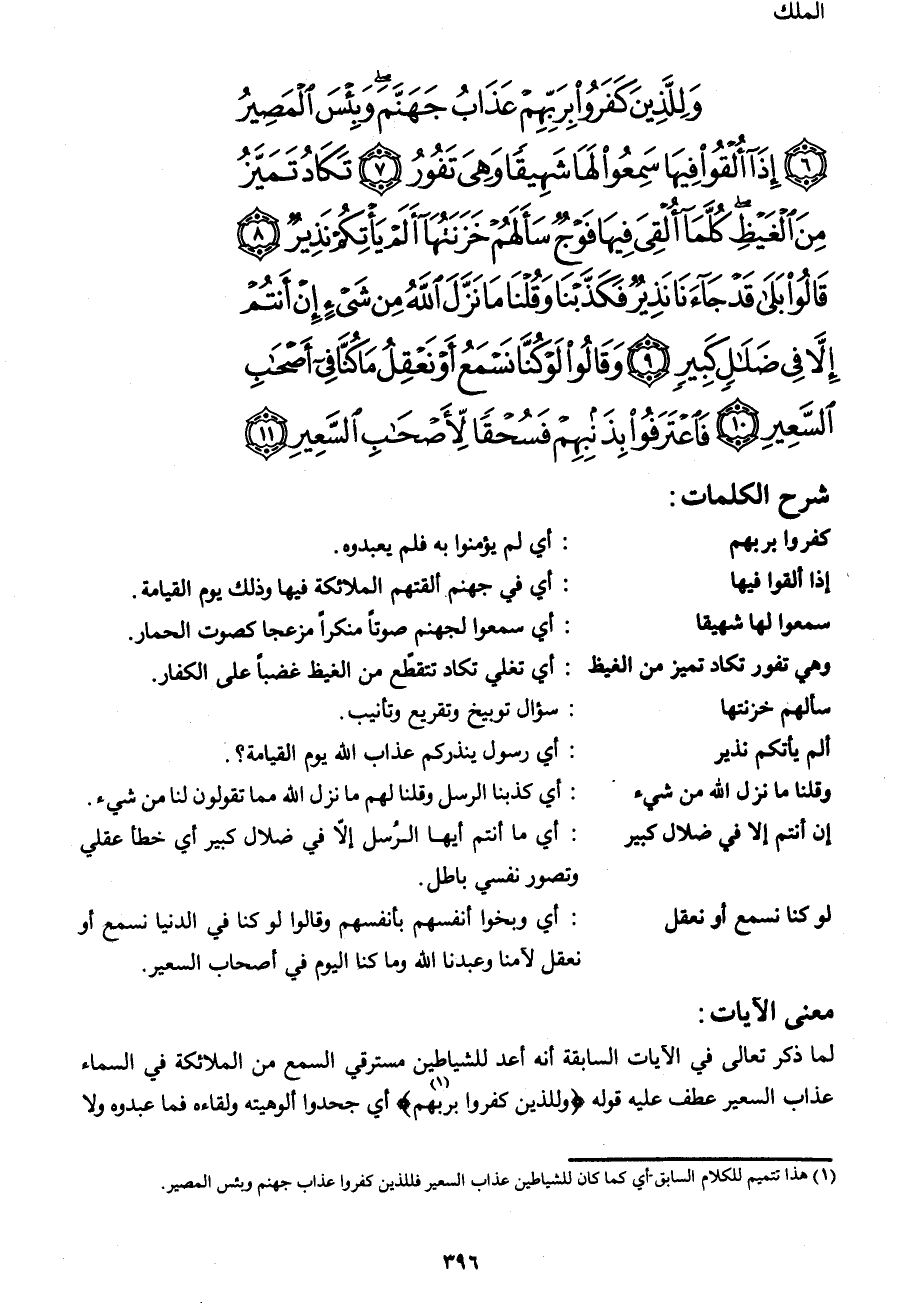 الملك
وَلِلَّذِينَ كَفَرُوا۟ بِرَبِّهِمْ عَذَابُ جَهَنَّمَ ۖ وَبِئْسَ ٱلْمَصِيرُ
٦ إِذَآ أُلْقُوا۟ فِيهَا سَمِعُوا۟ لَهَا شَهِيقًا وَهِىَ تَفُورُ ٧ تَكَادُ تَمَيَّزُ
مِنَ ٱلْغَيْظِ ۖ كُلَّمَآ أُلْقِىَ فِيهَا فَوْجٌ سَأَلَهُمْ خَزَنَتُهَآ أَلَمْ يَأْتِكُمْ نَذِيرٌ ٨
قَالُوا۟ بَلَىٰ قَدْ جَآءَنَا نَذِيرٌ فَكَذَّبْنَا وَقُلْنَا مَا نَزَّلَ ٱللَّهُ مِن شَىْءٍ إِنْ أَنتُمْ
إِلَّا فِى ضَلَٰلٍ كَبِيرٍ ٩ وَقَالُوا۟ لَوْ كُنَّا نَسْمَعُ أَوْ نَعْقِلُ مَا كُنَّا فِىٓ أَصْحَٰبِ
ٱلسَّعِيرِ ١٠ فَٱعْتَرَفُوا۟ بِذَنۢبِهِمْ فَسُحْقًا لِّأَصْحَٰبِ ٱلسَّعِيرِ ١١
شرح الكلمات :
كفروا بربهم : أي لم يؤمنوا به فلم يعبدوه.
إذا ألقوا فيها : أي في جهنم ألقتهم الملائكة فيها وذلك يوم القيامة.
سمعوا لها شهيقا : أي سمعوا لجهنم صوتاً منكراً مزعجا كصوت الحمار.
وهي تفور تكاد تميز من الغيظ : أي تغلي تكاد تتقطّع من الغيظ غضباً على الكفار.
سألهم خزنتها : سؤال توبيخ وتقريع وتأنيب.
ألم يأتكم نذير : أي رسول ينذركم عذاب الله يوم القيامة؟.
وقلنا ما نزل الله من شيء : أي كذبنا الرسل وقلنا لهم ما نزل الله مما تقولون لنا من شيء.
إن أنتم إلا في ضلال كبير : أي ما أنتم أيهـا الرُسل إلّا في ضلال كبير أي خطأ عقلي
وتصور نفسي باطل.
لو كنا نسمع أو نعقل : أي وبخوا أنفسهم بأنفسهم وقالوا لو كنا في الدنيا نسمع أو
نعقل لآمنا وعبدنا الله وما كنا اليوم في أصحاب السعير.
معنى الآيات :
لما ذكر تعالى في الآيات السابقة أنه أعد للشياطين مسترقي السمع من الملائكة في السماء
عذاب السعير عطف عليه قوله ﴿وللذين كفروا بربهم﴾ (١) أي جحدوا ألوهيته ولقاءه فما عبدوه ولا
(١) هذا تتميم للكلام السابق-أي كما كان للشياطين عذاب السعير فللذين كفروا عذاب جهنم وبئس المصير.
٣٩٦